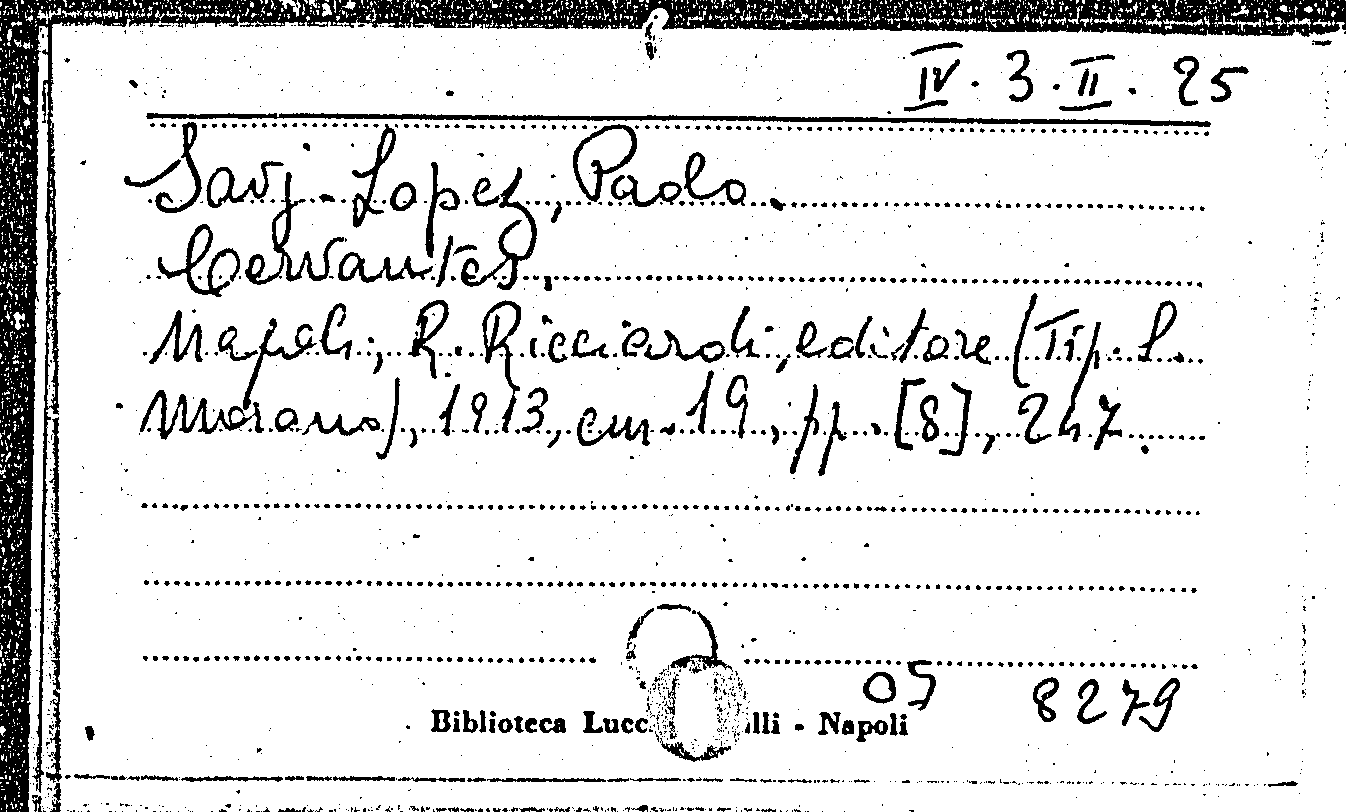 IV. 3. II. 25
Savj-Lopez, Paolo.
Cervantes.
Napoli, R. Ricciardi, editore (Tip. S.
Morano), 1913, cm. 19, pp. [8], 247.
05 8279
Biblioteca Lucc lli - Napoli